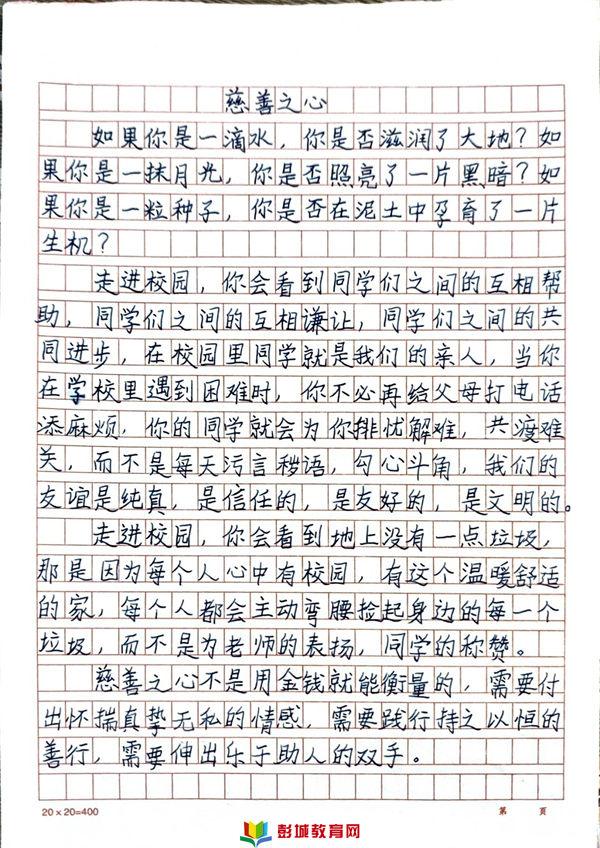 慈善之心
如果你是一滴水，你是否滋润了大地？如
果你是一抹月光，你是否照亮了一片黑暗？如
果你是一粒种子，你是否在泥土中孕育了一片
生机？
走进校园，你会看到同学们之间的互相帮
助，同学们之间的互相谦让，同学们之间的共
同进步，在校园里同学就是我们的亲人，当你
在学校里遇到困难时，你不必再给父母打电话
添麻烦，你的同学就会为你排忧解难，共渡难
关，而不是每天污言秽语，勾心斗角，我们的
友谊是纯真，是信任的，是友好的，是文明的。
走进校园，你会看到地上没有一点垃圾，
那是因为每个人心中有校园，有这个温暖舒适
的家，每个人都会主动弯腰捡起身边的每一个
垃圾，而不是为老师的表扬，同学的称赞。
慈善之心不是用金钱就能衡量的，需要付
出怀揣真挚无私的情感，需要践行持之以恒的
善行，需要伸出乐于助人的双手。
20×20=400 第 页
彭城教育网